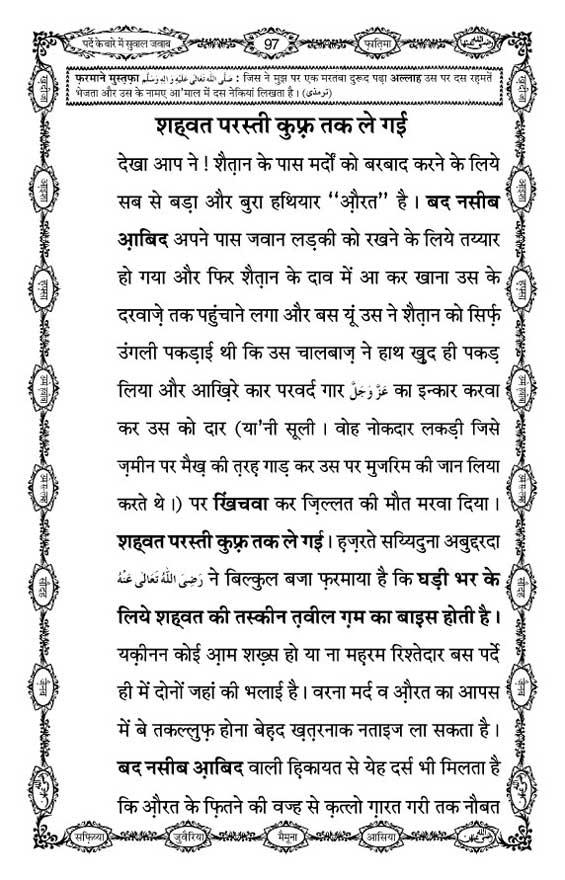 पर्दे के बारे में सुवाल जवाब
97
फ़ातिमा
फ़रमाने मुस्तफ़ा صَلَّی اللّٰہُ تَعَالٰی عَلَیْہِ وَاٰلِہٖ وَسَلَّم : जिस ने मुझ पर एक मरतबा दुरूद पढ़ा अल्लाह उस पर दस रहमतें
भेजता और उस के नामए आ'माल में दस नेकियां लिखता है। (ترمذی)
शह्वत परस्ती कुफ़्र तक ले गई
देखा आप ने ! शैत़ान के पास मर्दों को बरबाद करने के लिये
सब से बड़ा और बुरा हथियार “औ़रत” है। बद नसीब
आ़बिद अपने पास जवान लड़की को रखने के लिये तय्यार
हो गया और फिर शैत़ान के दाव में आ कर खाना उस के
दरवाज़े तक पहुंचाने लगा और बस यूं उस ने शैत़ान को सिर्फ़
उंगली पकड़ाई थी कि उस चालबाज़ ने हाथ खुद ही पकड़
लिया और आख़िरे कार परवर्द गार عَزَّوَجَلَّ का इन्कार करवा
कर उस को दार (या'नी सूली । वोह नोकदार लकड़ी जिसे
ज़मीन पर मैख़ की त़रह़ गाड़ कर उस पर मुजरिम की जान लिया
करते थे।) पर खिंचवा कर ज़िल्लत की मौत मरवा दिया।
शह्वत परस्ती कुफ़्र तक ले गई। ह़ज़रते सय्यिदुना अबुद्दरदा
رَضِیَ اللّٰہُ تَعَالٰی عَنْہُ ने बिल्कुल बजा फ़रमाया है कि घड़ी भर के
लिये शह्वत की तस्कीन त़वील ग़म का बाइस होती है।
यक़ीनन कोई आ़म शख़्स हो या ना मह़रम रिश्तेदार बस पर्दे
ही में दोनों जहां की भलाई है। वरना मर्द व औ़रत का आपस
में बे तकल्लुफ़ होना बेह़द ख़त़रनाक नताइज ला सकता है।
बद नसीब आ़बिद वाली ह़िकायत से येह दर्स भी मिलता है
कि औ़रत के फ़ितने की वज्ह से क़त्लो ग़ारत गरी तक नौबत
सफ़िय्या
जुवैरिया
मैमूना
आसिया